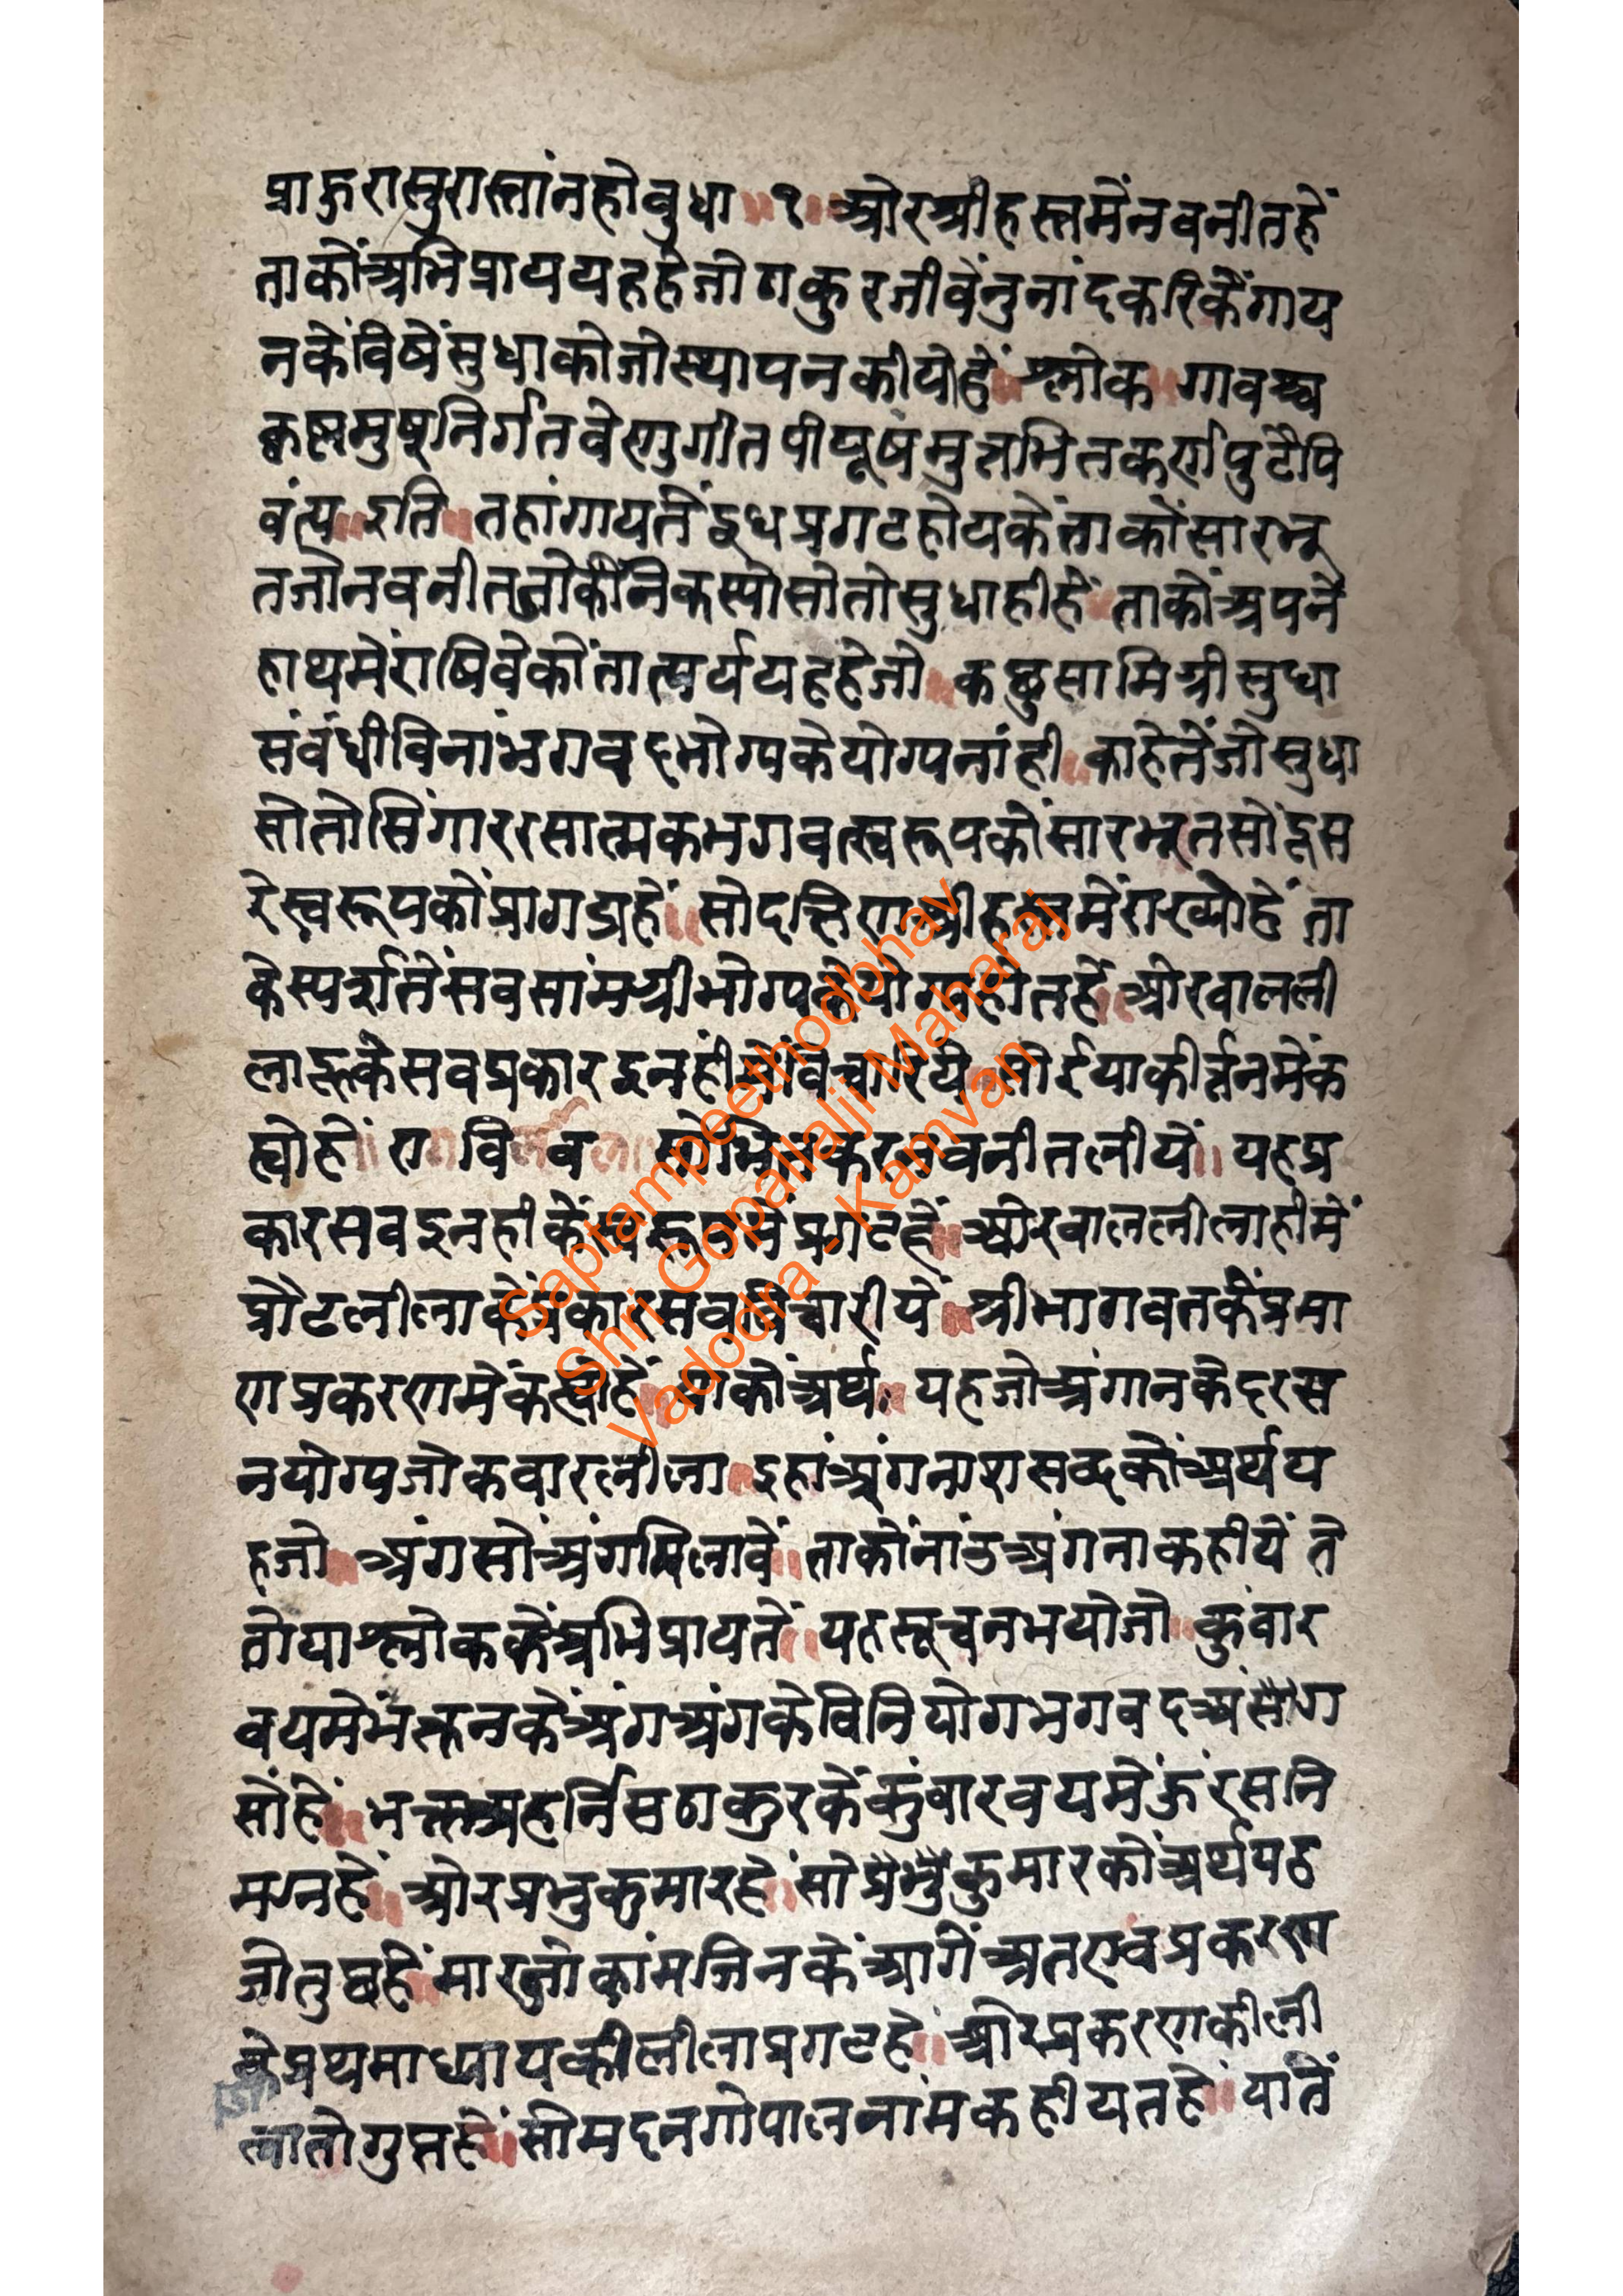 प्राकुरासुरास्तांनहोवुधा ॥ १ ॥ ओरश्रीहस्तमेंनवनीतहें
ताकोंअभिप्राययहहेजोठाकुरजीवेंनुनांदकरिकेंगाय
नकेंविषेंसुधाकोजोस्थापनकीयोहें ॥ श्लोक ॥ गावश्च
कृष्णमुषनिर्गतवेणुगीतपीयूषमुत्तभितकर्णपुटैपि
वंत्य ॥ इति ॥ तहांगायतेंदूधप्रगटहोयकेंताकोंसारभू
तजोनवनीतजोकीनिकस्योसोतोसुधाहीहें ॥ ताकोंअपने
हाथमेंराषिवेकोंतात्पर्ययहहेजो ॥ कछुसामिग्रीसुधा
संवंधीविनांभगवदभोग्यकेयोग्यनांही ॥ काहेतेंजोसुधा
सोतोसिंगाररसात्मकभगवत्स्वरूपकोंसारभूतसोंदूस
रेस्वरूपकोंप्रागट्यहें ॥ सोदक्षिणश्रीहस्तमेंराख्योहें ता
केस्पर्शतेंसवसांमग्रीभोग्यकेयोग्यहोतहें ॥ ओरवालली
लाहूकेसवप्रकारइनहीमेंविचारिये ॥ सोईयाकीर्त्तनमेंक
ह्योहें ॥ राग विलावल ॥ सोभितकरनवनीतलीयें ॥ यहप्र
कारसवइनहीकेंस्वरूपमेंप्रगटहें ॥ ओरवाललीलाहीमें
प्रौढलीलाकेंप्रकारसवविचारीयें ॥ श्रीभागवतकेंप्रमा
णप्रकरणमेंकह्योहें ॥ याकोंअर्थ ॥ यहजोअंगानकेदरस
नयोग्यजोकवारलीला ॥ इहांअंगनाशसव्दकोंअर्थय
हजो ॥ अंगसोंअंगमिलावें ॥ ताकोंनांउअंगनाकहीयें ते
वोयाश्लोककेंअभिप्रायतें ॥ यहसूचनभयोजो ॥ कुवार
वयमेंभक्तनकेंअंगअंगकेविनियोगभगवदअंसोंग
सोंहें ॥ भक्तअहर्निसठाकुरकेंकुंवारवयमेंऊंरसनि
मग्नहें ॥ ओरप्रभुकुमारहें ॥ सोप्रभुकुमारकोंअर्थयह
जोतुछहें ॥ मारजोकांमजिनकेंआगेंअतएवप्रकरण
केप्रथमाध्यायकीलीलाप्रगटहें ॥ ओरप्रकरणकीली
लातोगुप्तहें ॥ सोमदनगोपालनांमकहीयतहें ॥ यातें
Saptampeethodbhav
Shri Gopallalji Maharaj
Vadodra - Kamvan